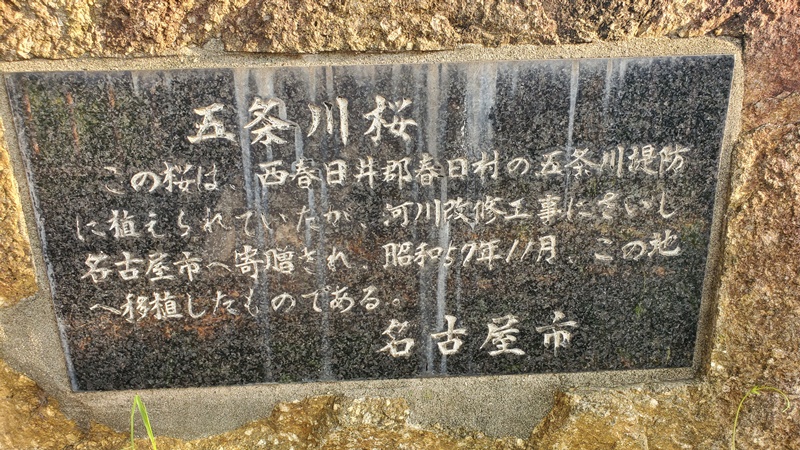 五条川桜
この桜は、西春日井郡春日村の五条川堤防
に植えられていたが、河川改修工事にさいし
名古屋市へ寄贈され、昭和57年11月、この地
へ移植したものである。
名古屋市